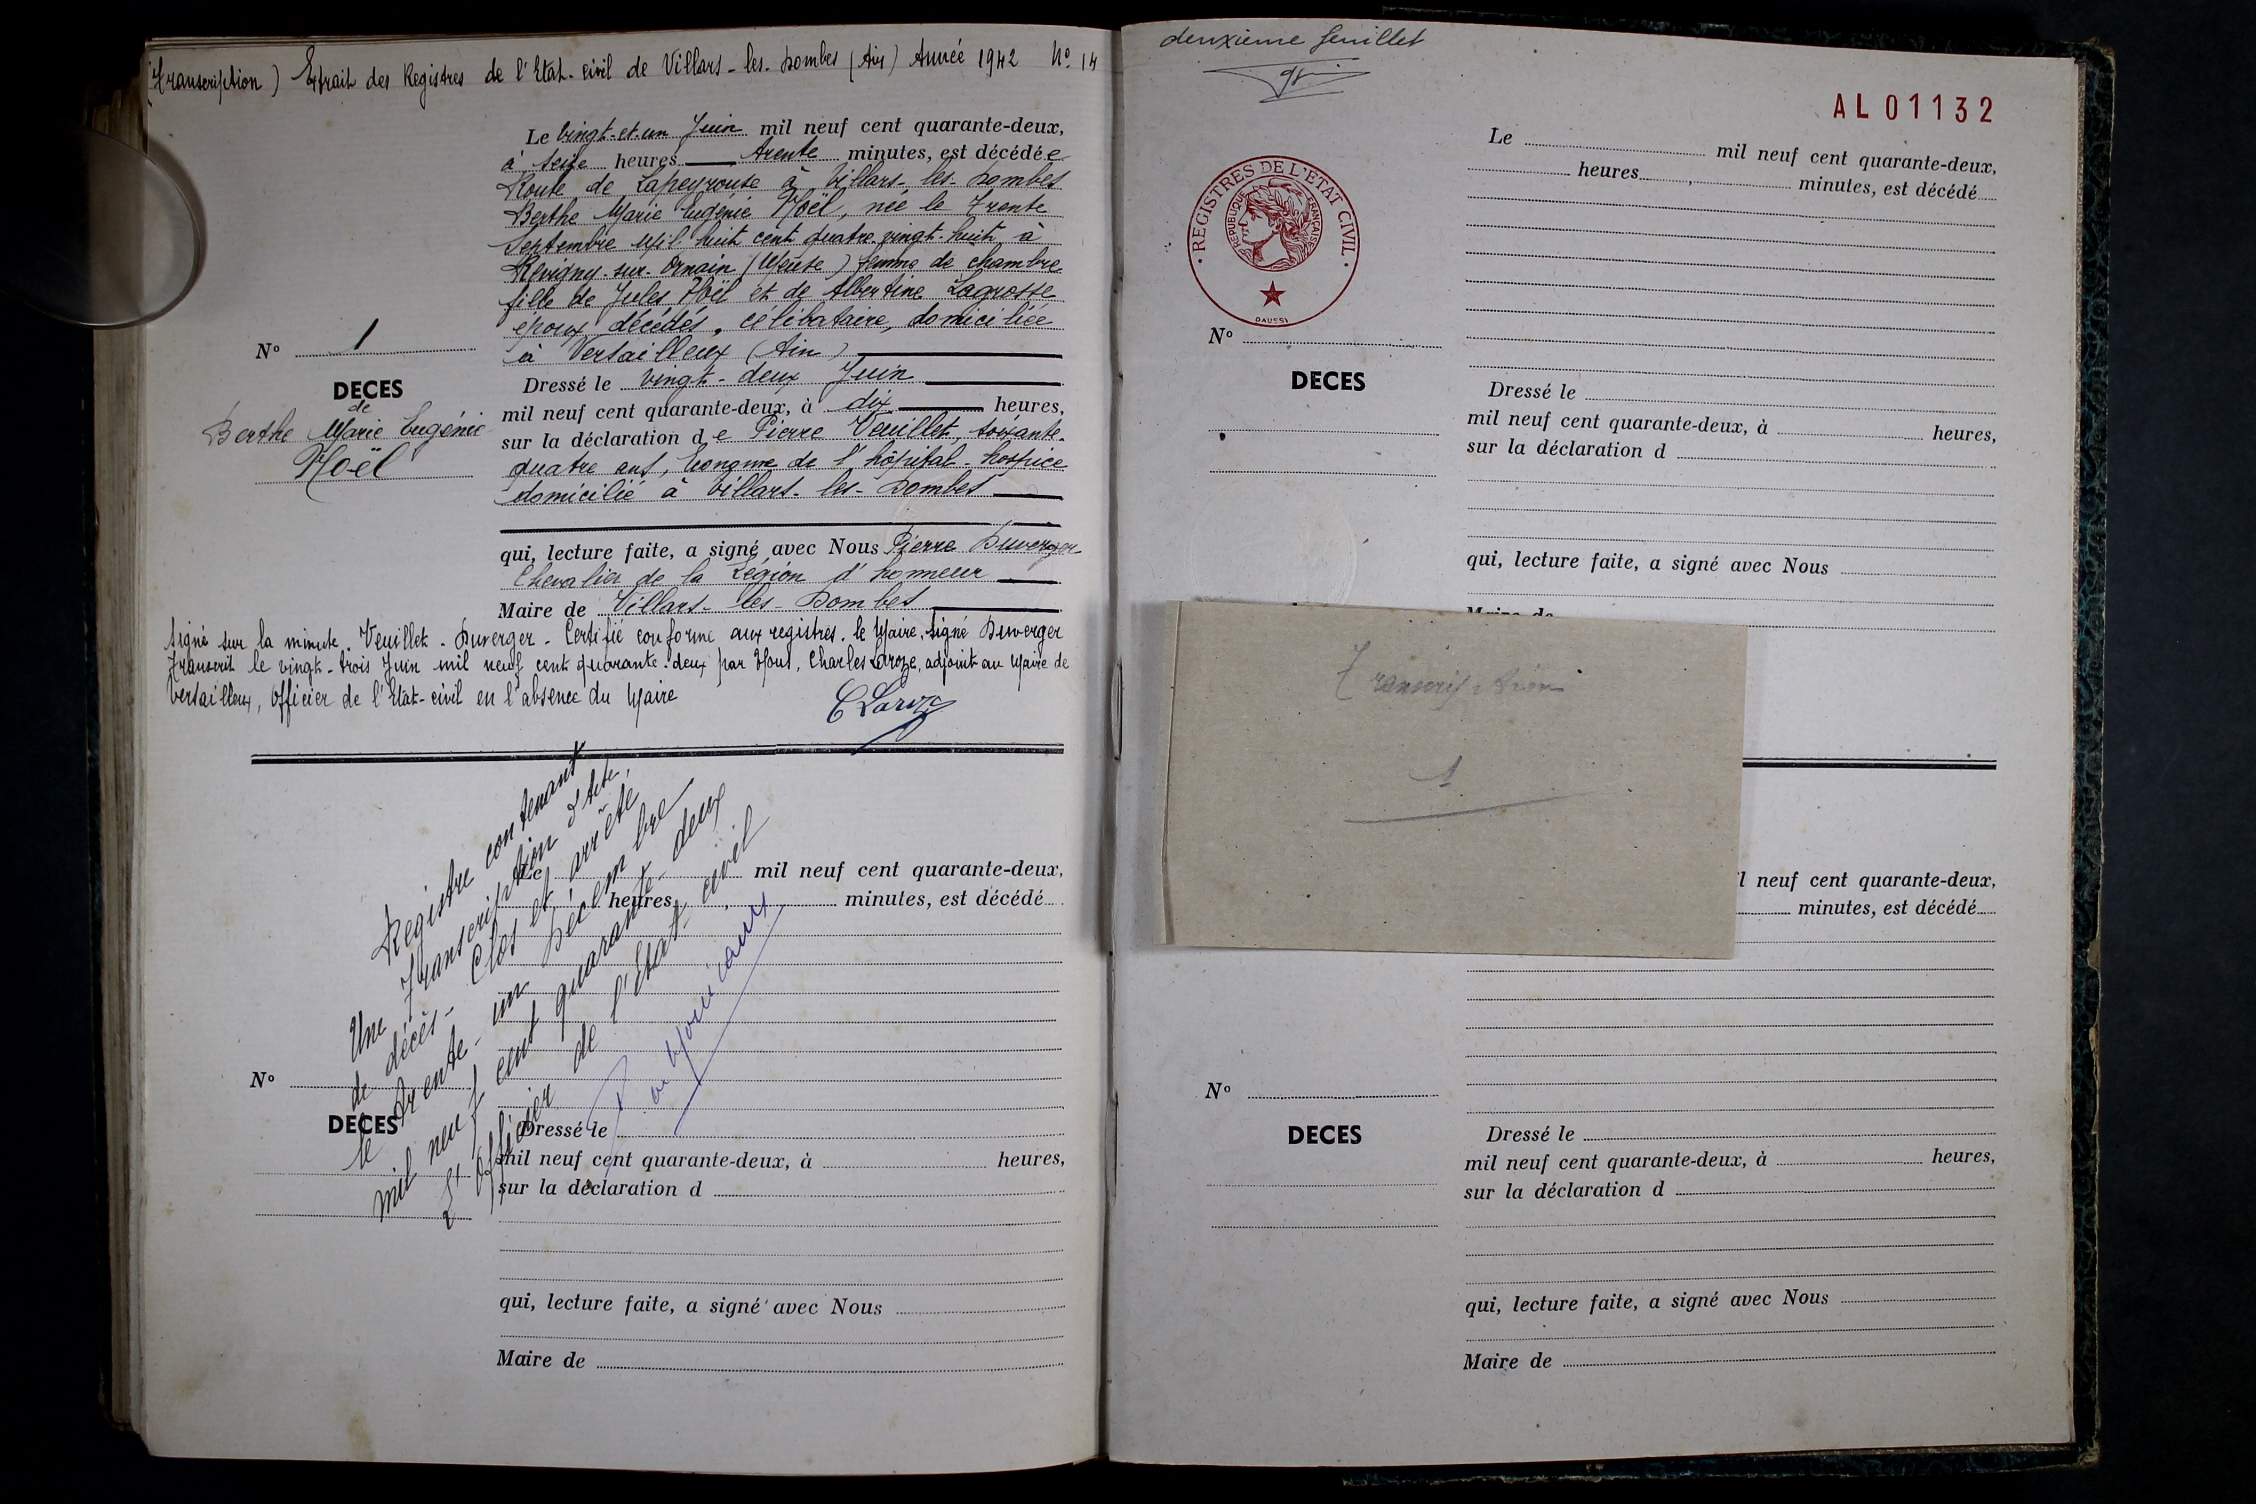 (Transcription) Extrait des Registres de l'Etat-civil de Villars-les-Dombes (Ain) Année 1942 No 14
Le Vingt-et-un Juin mil neuf cent quarante-deux,
à seize heures trente minutes, est décédée
Route de Lapeyrouse à Villars-les-Dombes
Berthe Marie Eugénie Noël, née le Trente
Septembre Mil huit cent quatre vingt-huit à
Révigny-sur-Ornain (Meuse) femme de chambre
fille de Jules Noël et de Albertine Lagrosse
époux décédés, célibataire, domiciliée
à Versailleux (Ain)
No 1
DECES
de
Berthe Marie Eugénie
Noël
Dressé le vingt-deux Juin
mil neuf cent quarante-deux, à dix heures,
sur la déclaration de Pierre Veuillet, soixante-
quatre ans, économe de l'hôpital-hospice
domicilié à Villars-les-Dombes
qui, lecture faite, a signé avec Nous Pierre Duverger
Chevalier de la Légion d'honneur
Maire de Villars-les-Dombes
Signé sur la minute. Veuillet - Duverger - Certifié conforme aux registres. le Maire, signé Duverger
Transcrit le vingt-trois Juin mil neuf cent quarante-deux par Nous, Charles Laroze, adjoint au Maire de
Versailleux, Officier de l'Etat-civil en l'absence du Maire
C Laroze
Registre contenant
Une transcription d'acte
de décès - Clos et arrêté
le trente-un Décembre
mil neuf cent quarante-deux
L'Officier de l'Etat-civil
Le mil neuf cent quarante-deux,
heures minutes, est décédé
No
DECES
Dressé le
mil neuf cent quarante-deux, à heures,
sur la déclaration d
qui, lecture faite, a signé avec Nous
Maire de
deuxième feuillet
AL01132
REGISTRES DE L'ETAT CIVIL
REPUBLIQUE FRANÇAISE
DAUSSI
Le mil neuf cent quarante-deux,
heures minutes, est décédé
No
DECES
Dressé le
mil neuf cent quarante-deux, à heures,
sur la déclaration d
qui, lecture faite, a signé avec Nous
Maire de
Transcription
1
l neuf cent quarante-deux,
minutes, est décédé
No
DECES
Dressé le
mil neuf cent quarante-deux, à heures,
sur la déclaration d
qui, lecture faite, a signé avec Nous
Maire de